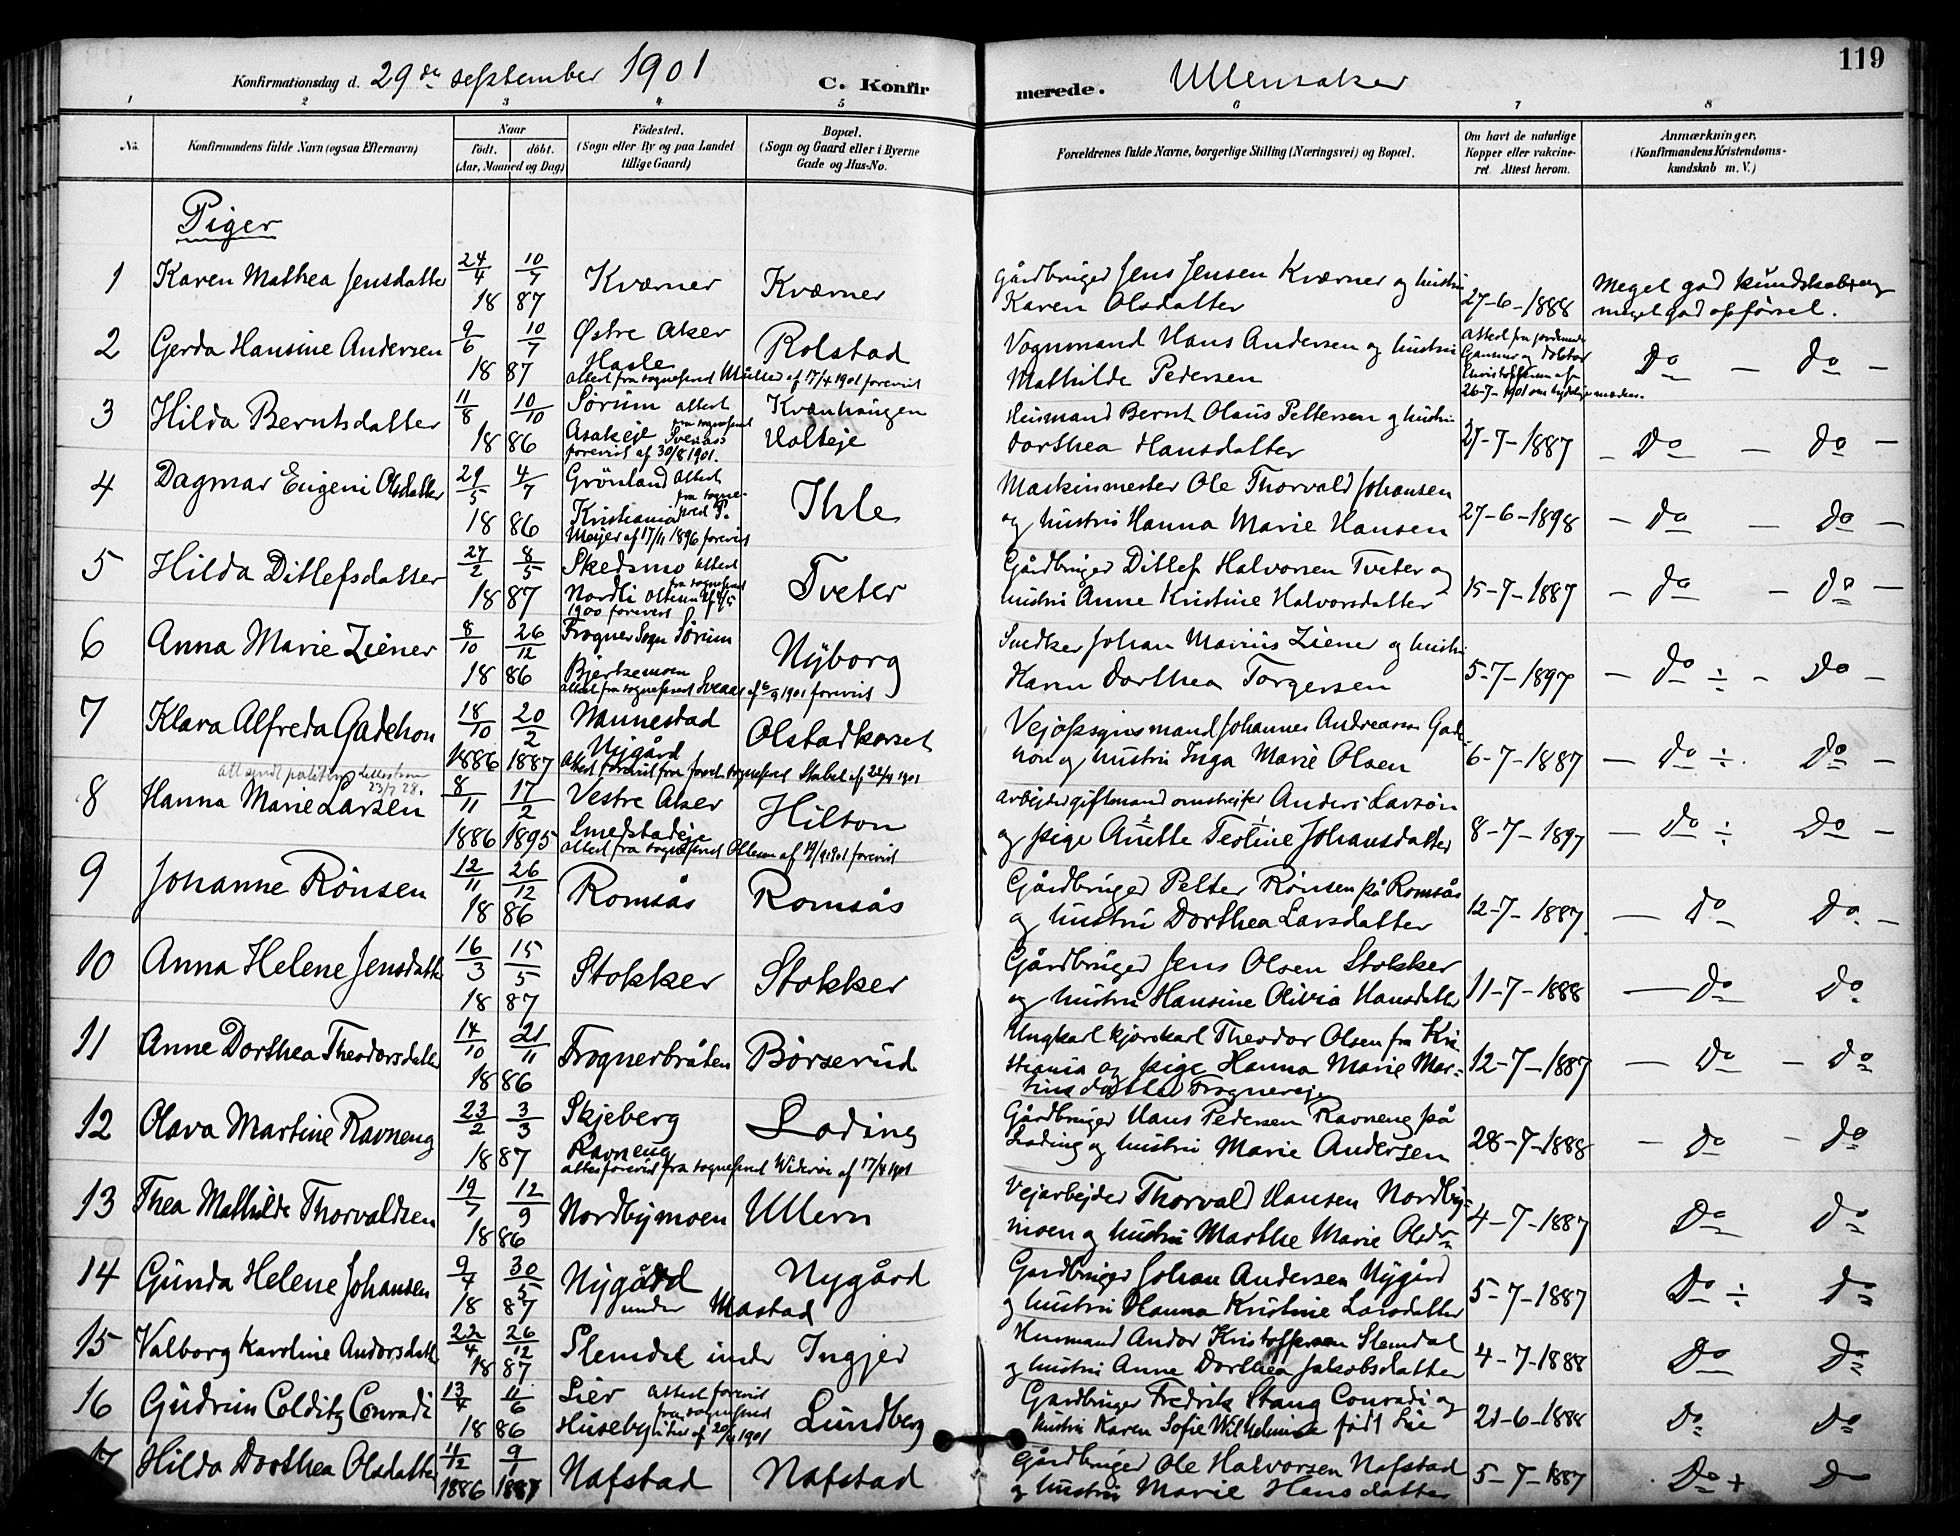 119
Konfirmationsdag d. 29de september 1901 C. Konfirmerede. Ullensaker
1 2 3 4 5 6 7 8
No. Konfirmandens fulde Navn (ogsaa Efternavn) Naar født. døbt. (Aar, Maaned og Dag) Fødested. (Sogn eller By og paa Landet tillige Gaard) Bopæl. (Sogn og Gaard eller i Byerne Gade og Hus-No. Forældrenes fulde Navne, borgerlige Stilling (Næringsvei) og Bopæl. Om havt de naturlige Kopper eller vakcineret. Attest herom. Anmærkninger. (Konfirmandens Kristendomskundskab m. V.)
Piger
1 Karen Mathea Jensdatter 24/4 10/7 1887 Kværner Kværner Gårdbruger Jens Jensen Kværner og hustru Karen Olsdatter 27-6-1888 Meget god kundskab og meget god opførsel.
2 Gerda Hansine Andersen 9/6 10/7 1887 Østre Aker Hasle attest fra sogneprest Müller af 17/4 1901 forevist Rolstad Vognmand Hans Andersen og hustru Mathilde Pedersen Attest fra 26-7-1901 Do - Do -
3 Hilda Berntsdatter 11/8 10/10 1886 Sørum Asakeje attest fra sogneprest Sveaas forevist af 30/8 1901. Kvænhaugen Holteje Husmand Bernt Olaus Pettersen og hustru Dorthea Hansdatter 27-7-1887 - Do - Do -
4 Dagmar Eugeni Olsdatter 29/5 4/7 1886 Grønland Kristiania Attest fra sogneprest P. Meyer af 17/11 1896 forevist Ihle Maskinmester Ole Thorvald Johansen og hustru Hanna Marie Hansen 27-6-1898 - Do - Do -
5 Hilda Ditlefsdatter 27/2 8/5 1887 Skedsmo Nordli attest fra sogneprest 1900 forevist Tveter Gårdbruger Ditlef Halvorsen Tveter og hustru Anne Kristine Halvorsdatter 15-7-1887 - Do - Do -
6 Anna Marie Ziener 8/10 26/12 1886 Frogner Sogn Sørum Bjertsemoen attest fra sogneprest Sveaas af 6/9 1901 forevist Nyborg Snedker Johan Marius Ziener og hustru Karen Dorthea Torgersen 5-7-1897 - Do ÷ - Do -
7 Klara Alfreda Gadehon 18/10 1886 20/2 1887 Nannestad Nygård Attest forevist fra sogneprest Stabel af 22/4 1901 Olstadkorset Johannes Andreasen Gadehon og hustru Inga Marie Olsen 6-7-1887 - Do ÷ Do -
8 Hanna Marie Larsen 8/11 1886 17/2 1895 Vestre Aker Smedstadeje attest fra sogneprest af 19/9 1901 forevist Hilton Arbejder giftmand omstrejfer Anders Larsøn og pige Anette Teoline Johansdatter 8-7-1897 - Do ÷ Do -
9 Johanne Rönsen 12/11 26/12 1886 Romsås Romsås Gårdbruger Petter Rönsen på Romsås og hustru Dorthea Larsdatter 12-7-1887. - Do Do -
10 Anna Helene Jensdatter 16/3 15/5 1887 Stokker Stokker Gårdbruger Jens Olsen Stokker og hustru Hansine Olivia Hansdatter 11-7-1888 - Do Do
11 Anne Dorthea Theodorsdatter 14/10 21/11 1886 Frognerbråten Børserud Ungkarl kjørekarl Theodor Olsen fra Kristiania og pige Hanna Marie Martinsdatter Frognereje 12-7-1887 - Do - Do
12 Olava Martine Ravneng 23/2 3/3 1887 Skjeberg Ravneng attest forevist fra sogneprest Widerøe af 17/4 1901 Loding Gårdbruger Hans Pedersen Ravneng på Loding og hustru Marie Andersen 28-7-1888 - Do - Do
13 Thea Mathilde Thorvaldsen 19/7 12/9 1886 Nordbymoen Ullern Vejarbejder Thorvald Hansen Nordbymoen og hustru Marthe Marie Olsdr 4-7-1887 Do Do
14 Gunda Helene Johansen 9/4 30/5 1887 Nygård under Mastad Nygård Gardbruger Johan Andersen Nygård og hustru Hanna Kristine Larsdatter 5-7-1887 Do ÷ Do
15 Valborg Karoline Andorsdatt 22/4 26/12 1887 Slemdal under Ingjer Husmand Andor Kristoffersen Slemdal og hustru Anne Dorthea Jakobsdatter 4-7-1888 Do Do
16 Gudrun Colditz Conradi 13/4 11/6 1886 Lier Huseby attest forevist fra sogneprest 1901 Lundberg Gardbruger Fredrik Stang Conradi og hustru Karen Sofie Wilhelmine født Lie 21-6-1888 Do Do
17 Hilda Dorthea Olsdatter 11/12 1886 9/1 1887 Nafstad Nafstad Gårdbruger Ole Halvorsen Nafstad og hustru Marie Hansdatter 5-7-1887 Do + Do